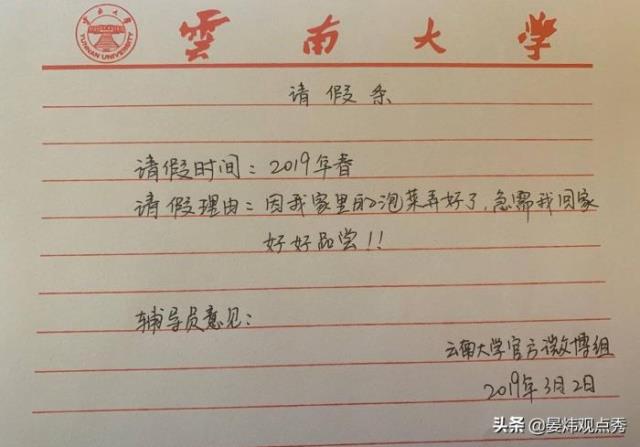 云南大学
YUNNAN UNIVERSITY
雲南大学
请假条
请假时间：2019年春
请假理由：因我家里的泡菜弄好了，急需我回家
好好品尝！！
辅导员意见：
云南大学官方微博组
2019年3月2日
头条 @晏炜观点秀